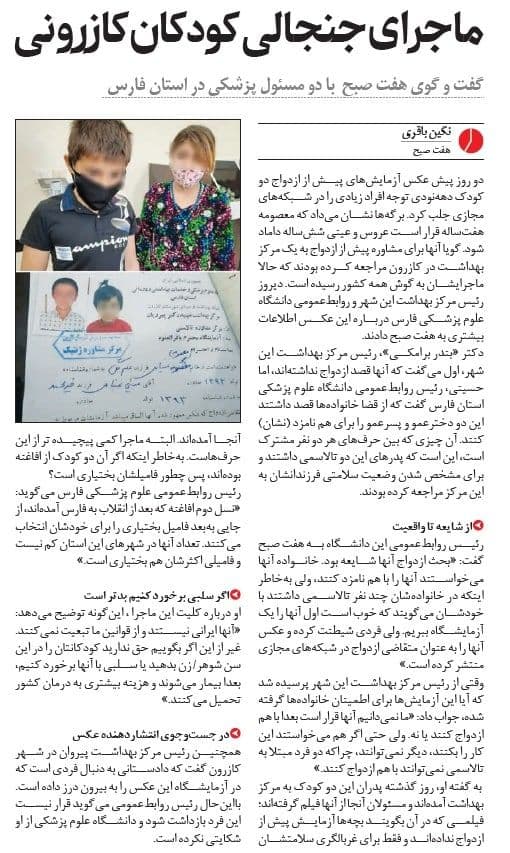 ماجرای جنجالی کودکان کازرونی
گفت و گوی هفت صبح با دو مسئول پزشکی در استان فارس
نگین باقری
هفت صبح
دو روز پیش عکس آزمایش‌های پیش از ازدواج دو
کودک دهه‌نودی توجه افراد زیادی را در شبکه‌های
مجازی جلب کرد. برگه‌ها نشان می‌داد که معصومه
هفت‌ساله قرار است عروس و عیتی شش‌ساله داماد
شود. گویا آنها برای مشاوره پیش از ازدواج به یک مرکز
بهداشت در کازرون مراجعه کرده بودند که حالا
ماجرایشان به گوش همه کشور رسیده است. دیروز
رئیس مرکز بهداشت این شهر و روابط‌عمومی دانشگاه
علوم پزشکی فارس درباره این عکس اطلاعات
بیشتری به هفت صبح دادند.
دکتر «بندر برامکی»، رئیس مرکز بهداشت این
شهر، اول می‌گفت که آنها قصد ازدواج نداشته‌اند، اما
حسینی، رئیس روابط‌عمومی دانشگاه علوم پزشکی
استان فارس گفت که از قضا خانواده‌ها قصد داشتند
این دو دخترعمو و پسرعمو را برای هم نامزد (نشان)
کنند. آن چیزی که بین حرف‌های هر دو نفر مشترک
است، این است که پدرهای این دو تالاسمی داشتند و
برای مشخص شدن وضعیت سلامتی فرزندانشان به
این مرکز مراجعه کرده بودند.
از شایعه تا واقعیت
رئیس روابط‌عمومی این دانشگاه به هفت صبح
گفت: «بحث ازدواج آنها شایعه بود. خانواده آنها
می‌خواستند آنها را با هم نامزد کنند، ولی به‌خاطر
اینکه در خانواده‌شان چند نفر تالاسمی داشتند با
خودشان می‌گویند که خوب است اول آنها را یک
آزمایشگاه ببریم. ولی فردی شیطنت کرده و عکس
آنها را به عنوان متقاضی ازدواج در شبکه‌های مجازی
منتشر کرده است.»
وقتی از رئیس مرکز بهداشت این شهر پرسیده شد
که آیا این آزمایش‌ها برای اطمینان خانواده‌ها گرفته
شده، جواب داد: «ما نمی‌دانیم آنها قرار است بعدا با هم
ازدواج کنند یا نه. ولی حتی اگر هم می‌خواستند این
کار را بکنند، دیگر نمی‌توانند، چراکه دو فرد مبتلا به
تالاسمی نمی‌توانند با هم ازدواج کنند.»
به گفته او، روز گذشته پدران این دو کودک به مرکز
بهداشت آمده‌اند و مسئولان آنجا از آنها فیلم گرفته‌اند؛
فیلمی که در آن بگویند بچه‌ها آزمایش پیش از
ازدواج نداده‌اند و فقط برای غربالگری سلامتشان
champion
مرکز مشاوره ژنتیک
۱۳۹۲
۱۳۹۳
آنجا آمده‌اند. البته ماجرا کمی پیچیده تر از این
حرف‌هاست. به‌خاطر اینکه اگر آن دو کودک از افاغنه
بوده‌اند، پس چطور فامیلشان بختیاری است؟
رئیس روابط‌عمومی علوم پزشکی فارس می‌گوید:
«نسل دوم افاغنه که بعد از انقلاب به فارس آمده‌اند، از
جایی به‌بعد فامیل بختیاری را برای خودشان انتخاب
می‌کنند. تعداد آنها در شهرهای این استان کم نیست
و فامیلی اکثرشان هم بختیاری است.»
اگر سلبی برخورد کنیم بدتر است
او درباره کلیت این ماجرا ، این‌گونه توضیح می‌دهد:
«آنها ایرانی نیستند و از قوانین ما تبعیت نمی‌کنند.
غیر از این اگر بگوییم حق ندارید کودکانتان را در این
سن شوهر/زن بدهید یا سلبی با آنها برخورد کنیم،
بعدا بیمار می‌شوند و هزینه بیشتری به درمان کشور
تحمیل می‌کنند.»
در جست‌وجوی انتشاردهنده عکس
همچنین رئیس مرکز بهداشت پیروان در شهر
کازرون گفت که دادستانی به دنبال فردی است که
در آزمایشگاه این عکس را به بیرون درز داده است.
بااین‌حال رئیس روابط‌عمومی می‌گوید قرار نیست
این فرد بازداشت شود و دانشگاه علوم پزشکی از او
شکایتی نکرده است.